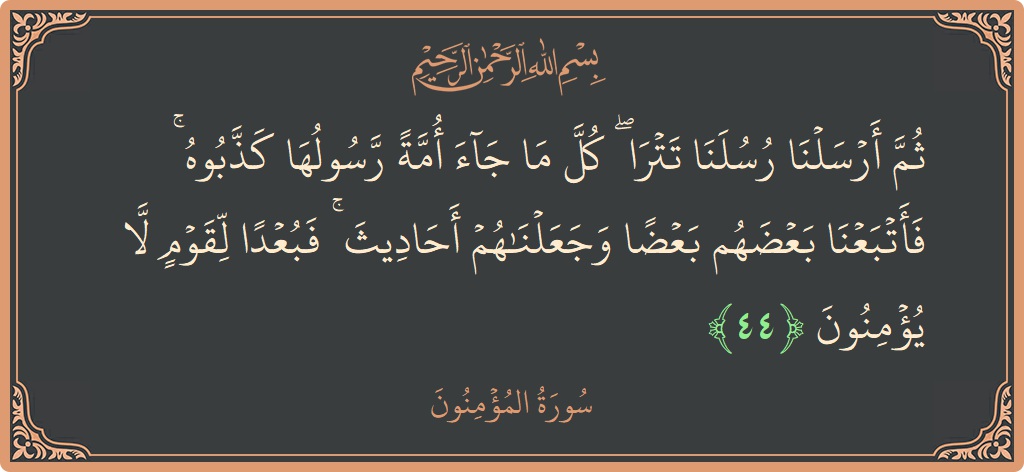 بِسْمِ اللَّهِ الرَّحْمَٰنِ الرَّحِيمِ
ثُمَّ أَرْسَلْنَا رُسُلَنَا تَتْرَا ۖ كُلَّ مَا جَآءَ أُمَّةً رَّسُولُهَا كَذَّبُوهُ ۚ
فَأَتْبَعْنَا بَعْضَهُم بَعْضًا وَجَعَلْنَٰهُمْ أَحَادِيثَ ۚ فَبُعْدًا لِّقَوْمٍ لَّا
يُؤْمِنُونَ ﴿٤٤﴾
سُورَةُ المُؤْمِنُونَ